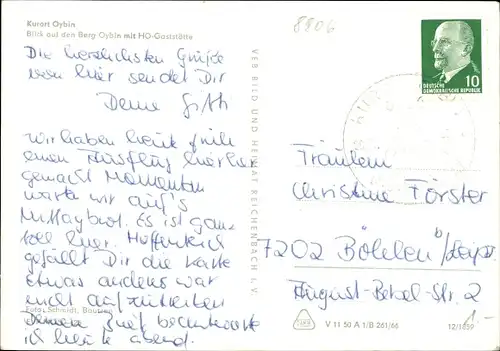 8806
Kurort Oybin
Blick auf den Berg Oybin mit HO-Gaststätte
Die herzlichsten Grüße
von hier sendet Dir
Deine
Wir haben heute früh
einen Ausflug hierher
gemacht Momentan
warten wir auf's
Mittagbrot. Es ist ganz
toll hier. Hoffentlich
gefällt Dir die Karte
etwas anderes war
nicht aufzutreiben
Foto: Schmidt, Bautzen
Deinen Brief beantworte
ich heute abend.
VEB BILD UND HEIMAT REICHENBACH i. V.
10
DEUTSCHE
DEMOKRATISCHE REPUBLIK
Fräulein
Christine Förster
7202 Böhlen b/Leipz.
August-Bebel-Str. 2
V 11 50 A 1/B 261/66